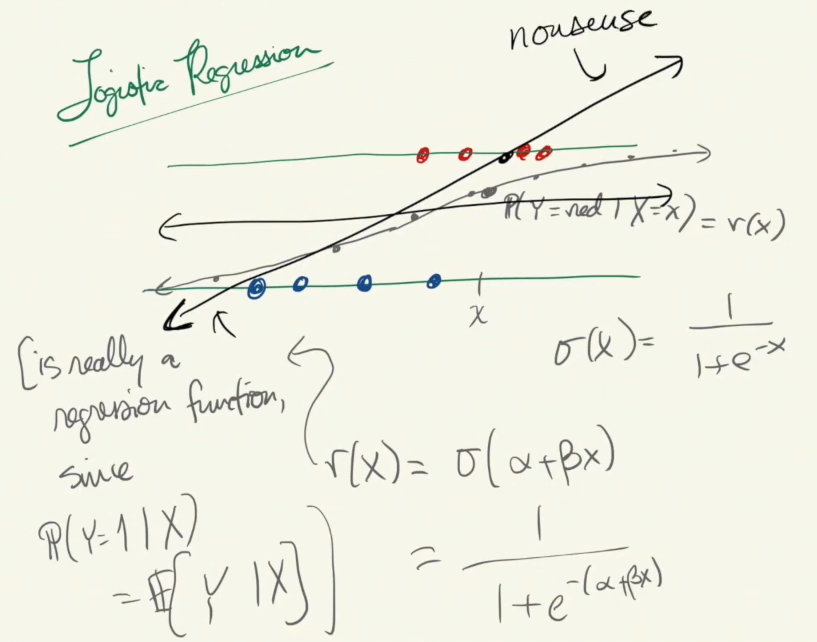 Logistic Regression
nonsense
P(Y=red | X=x) = r(x)
x
σ(x) = 1/(1+e^{-x})
[is really a
regression function,
since
P(Y=1|X)
= E[Y|X]]
r(x) = σ(α+βx)
= 1/(1+e^{-(α+βx)})